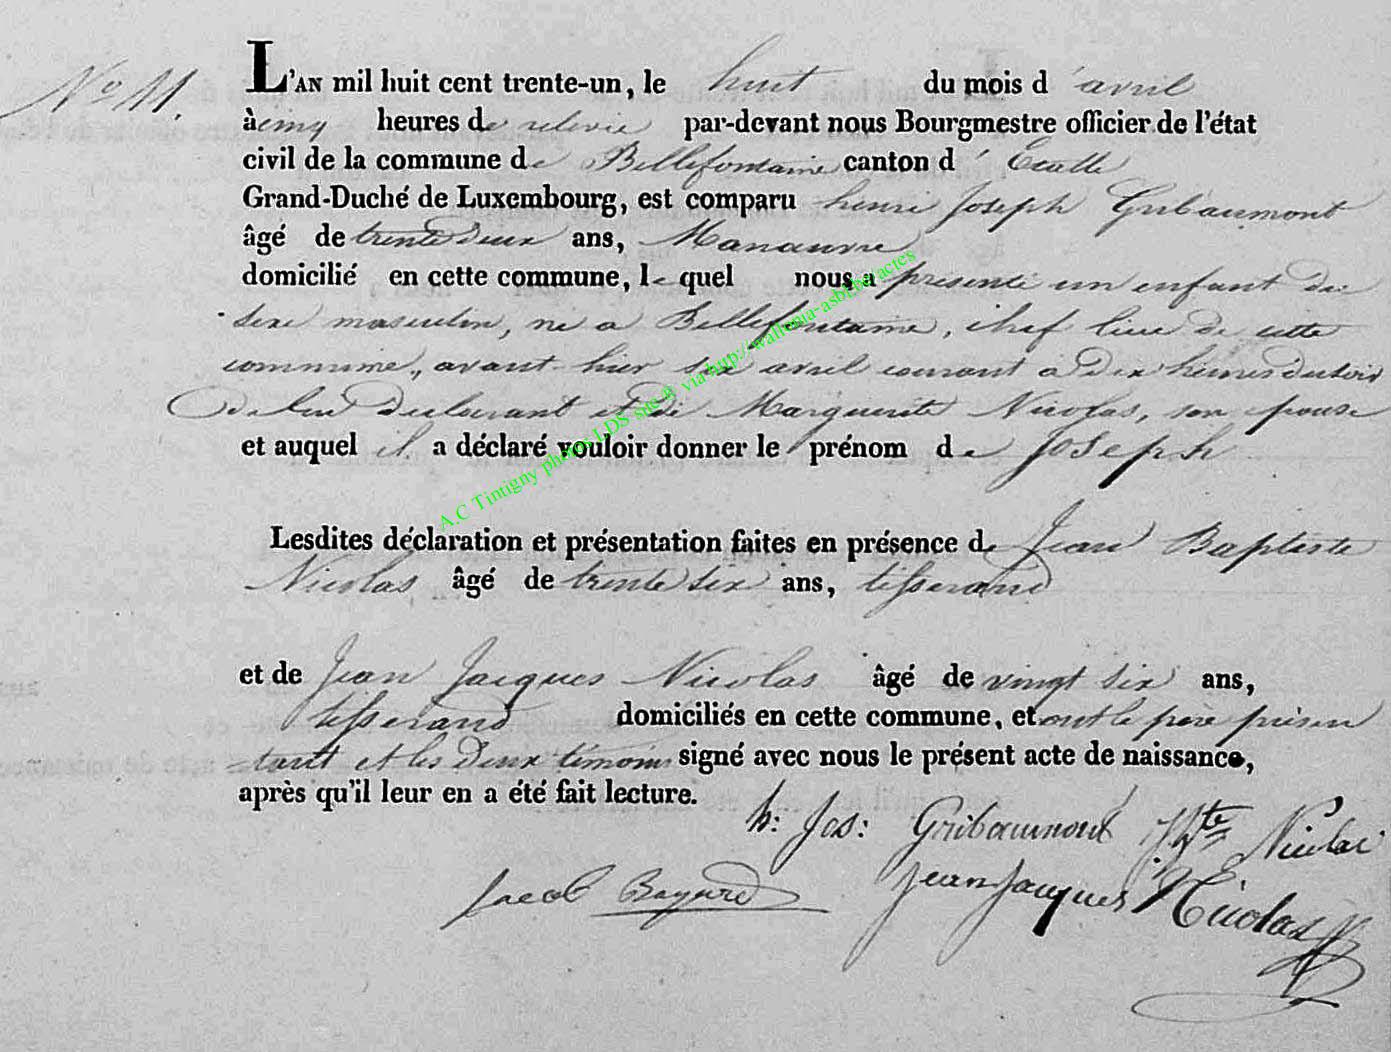 N° 11.
L'AN mil huit cent trente-un, le huit du mois d'avril
à cinq heures de relevée par-devant nous Bourgmestre officier de l'état
civil de la commune de Bellefontaine canton d'Etalle
Grand-Duché de Luxembourg, est comparu henri Joseph Gribaumont
âgé de trente deux ans, Manœuvre
domicilié en cette commune, lequel nous a présenté un enfant du
sexe masculin, né a Bellefontaine, chef lieu de cette
commune, avant-hier six avril courant à dix heures du soir
de lui déclarant et de Marguerite Nicolas, son épouse
et auquel il a déclaré vouloir donner le prénom de Joseph
Lesdites déclaration et présentation faites en présence de Jean Baptiste
Nicolas âgé de trente six ans, tisserand
et de Jean Jacques Nicolas âgé de vingt six ans,
tisserand domiciliés en cette commune, et ont le père présen
tant et les deux témoins signé avec nous le présent acte de naissance,
après qu'il leur en a été fait lecture.
h: Jos: Gribaumont Nicolas
Jacob Bayard Jean Jacques Nicolas
A.C Tintigny photos LDS sur @ via http://wallonia-asbl.be/actes